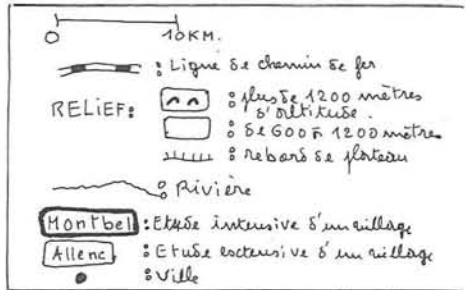 0 10KM.
: Ligne de chemin de fer
RELIEF: : plus de 1200 mètres
d'altitude.
: de 600 à 1200 mètres
: rebord de plateau
: Rivière
Montbel : Etude intensive d'un village
Allenc : Etude extensive d'un village
: Ville